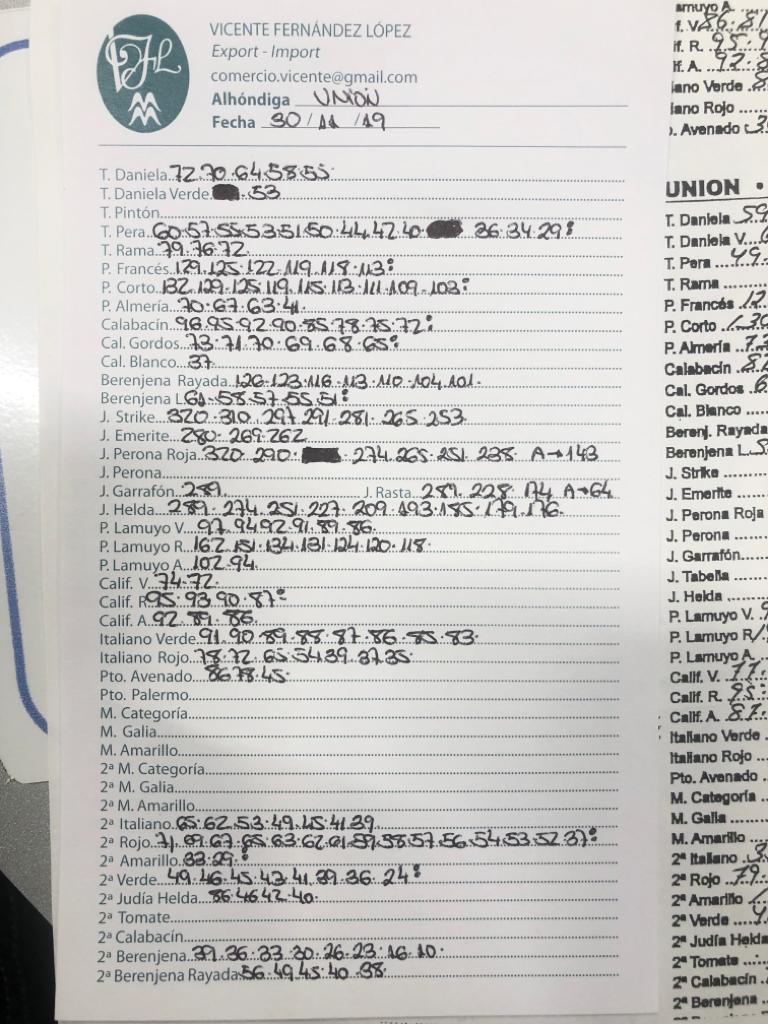 VICENTE FERNÁNDEZ LÓPEZ
Export - Import
comercio.vicente@gmail.com
Alhóndiga UNION
Fecha 30/11/19
T. Daniela 72.70.64.58.55
T. Daniela Verde .53
T. Pintón
T. Pera 60.57.55.53.51.50.44.42.40 36.34.29:
T. Rama 79.76.72
P. Francés 129.125.122.119.118.113:
P. Corto 132.129.125.119.115.113.111.109.103:
P. Almería 70.67.63.41
Calabacín 96.95.92.90.85.78.75.72:
Cal. Gordos 73.71.70.69.68.65:
Cal. Blanco 37
Berenjena Rayada 126.123.116.113.110.104.101.
Berenjena L 61.58.57.55.51:
J. Strike 320.310.297.291.281.265.253
J. Emerite 280.269.262
J. Perona Roja 320.290. 274.265.251.238. A→143
J. Perona
J. Garrafón 289 J. Rasta 289.228.174 A→64
J. Helda 289.274.251.227.209.193.185.179.176.
P. Lamuyo V. 97.94.92.91.89.86.
P. Lamuyo R. 162.151.134.131.124.120.118.
P. Lamuyo A. 102.94.
Calif. V. 74.72
Calif. R. 95.93.90.87:
Calif. A. 92.89.86.
Italiano Verde 91.90.89.88.87.86.85.83.
Italiano Rojo 78.72.65.54.39.37.35
Pto. Avenado 86.78.45.
Pto. Palermo
M. Categoría
M. Galia
M. Amarillo
2ª M. Categoría
2ª M. Galia
2ª M. Amarillo
2ª Italiano 65.62.53.49.45.41.39
2ª Rojo 71.69.67.65.63.62.61.59.58.57.56.54.53.52.37:
2ª Amarillo 33.29.:
2ª Verde 49.46.45.43.41.39.36.24:
2ª Judía Helda 86.46.42.40.
2ª Tomate
2ª Calabacín
2ª Berenjena 39.36.33.30.26.23.16.10.
2ª Berenjena Rayada 56.49.45.40.38.
amuyo A.
f. V. 86.81
if. R. 95.9
if. A. 92.8
iano Verde
iano Rojo
. Avenado
UNION •
T. Daniela 59
T. Daniela V.
T. Pera 49.
T. Rama
P. Francés 12
P. Corto 130
P. Almería 7
Calabacín 82
Cal. Gordos 6
Cal. Blanco
Berenj. Rayada
Berenjena L. 5
J. Strike
J. Emerite
J. Perona Roja
J. Perona
J. Garrafón
J. Tabella
J. Helda
P. Lamuyo V. 9
P. Lamuyo R
P. Lamuyo A.
Calif. V. 77
Calif. R. 95
Calif. A. 87
Italiano Verde
Italiano Rojo
Pto. Avenado
M. Categoría
M. Galia
M. Amarillo
2ª Italiano
2ª Rojo 79.
2ª Amarillo
2ª Verde
2ª Judía Helda
2ª Tomate
2ª Calabacín
2ª Berenjena